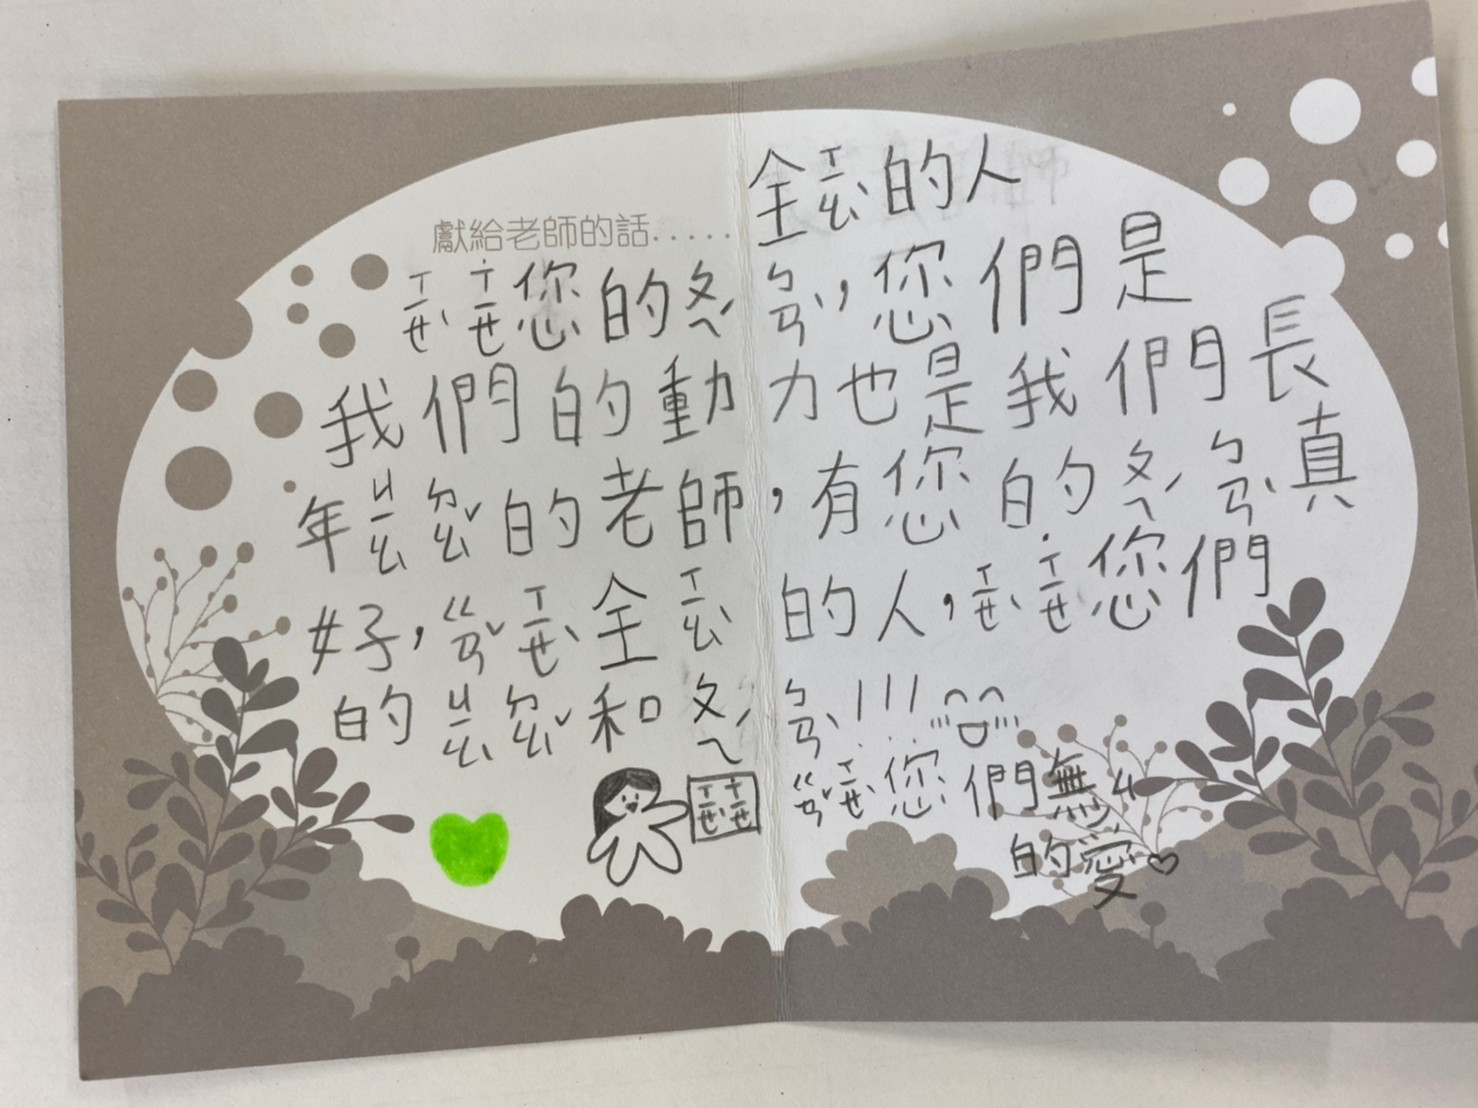 全ㄒㄧㄠˋ的人
獻給老師的話.....
ㄒㄧㄝˋㄒㄧㄝ˙您的ㄆㄟˊㄅㄢˋ，您們是
我們的動力也是我們長
年ㄐㄧㄠˋㄉㄠˇ的老師，有您的ㄆㄟˊㄅㄢˋ真
好，ㄍㄢˇㄒㄧㄝˋ全ㄒㄧㄠˋ的人，ㄒㄧㄝˋㄒㄧㄝ˙您們
的ㄐㄧㄠˋㄉㄠˇ和ㄆㄟˊㄅㄢˋ!!!
ㄒㄧㄝˋㄒㄧㄝ
ㄍㄢˇㄒㄧㄝˋ您們無
的愛♡